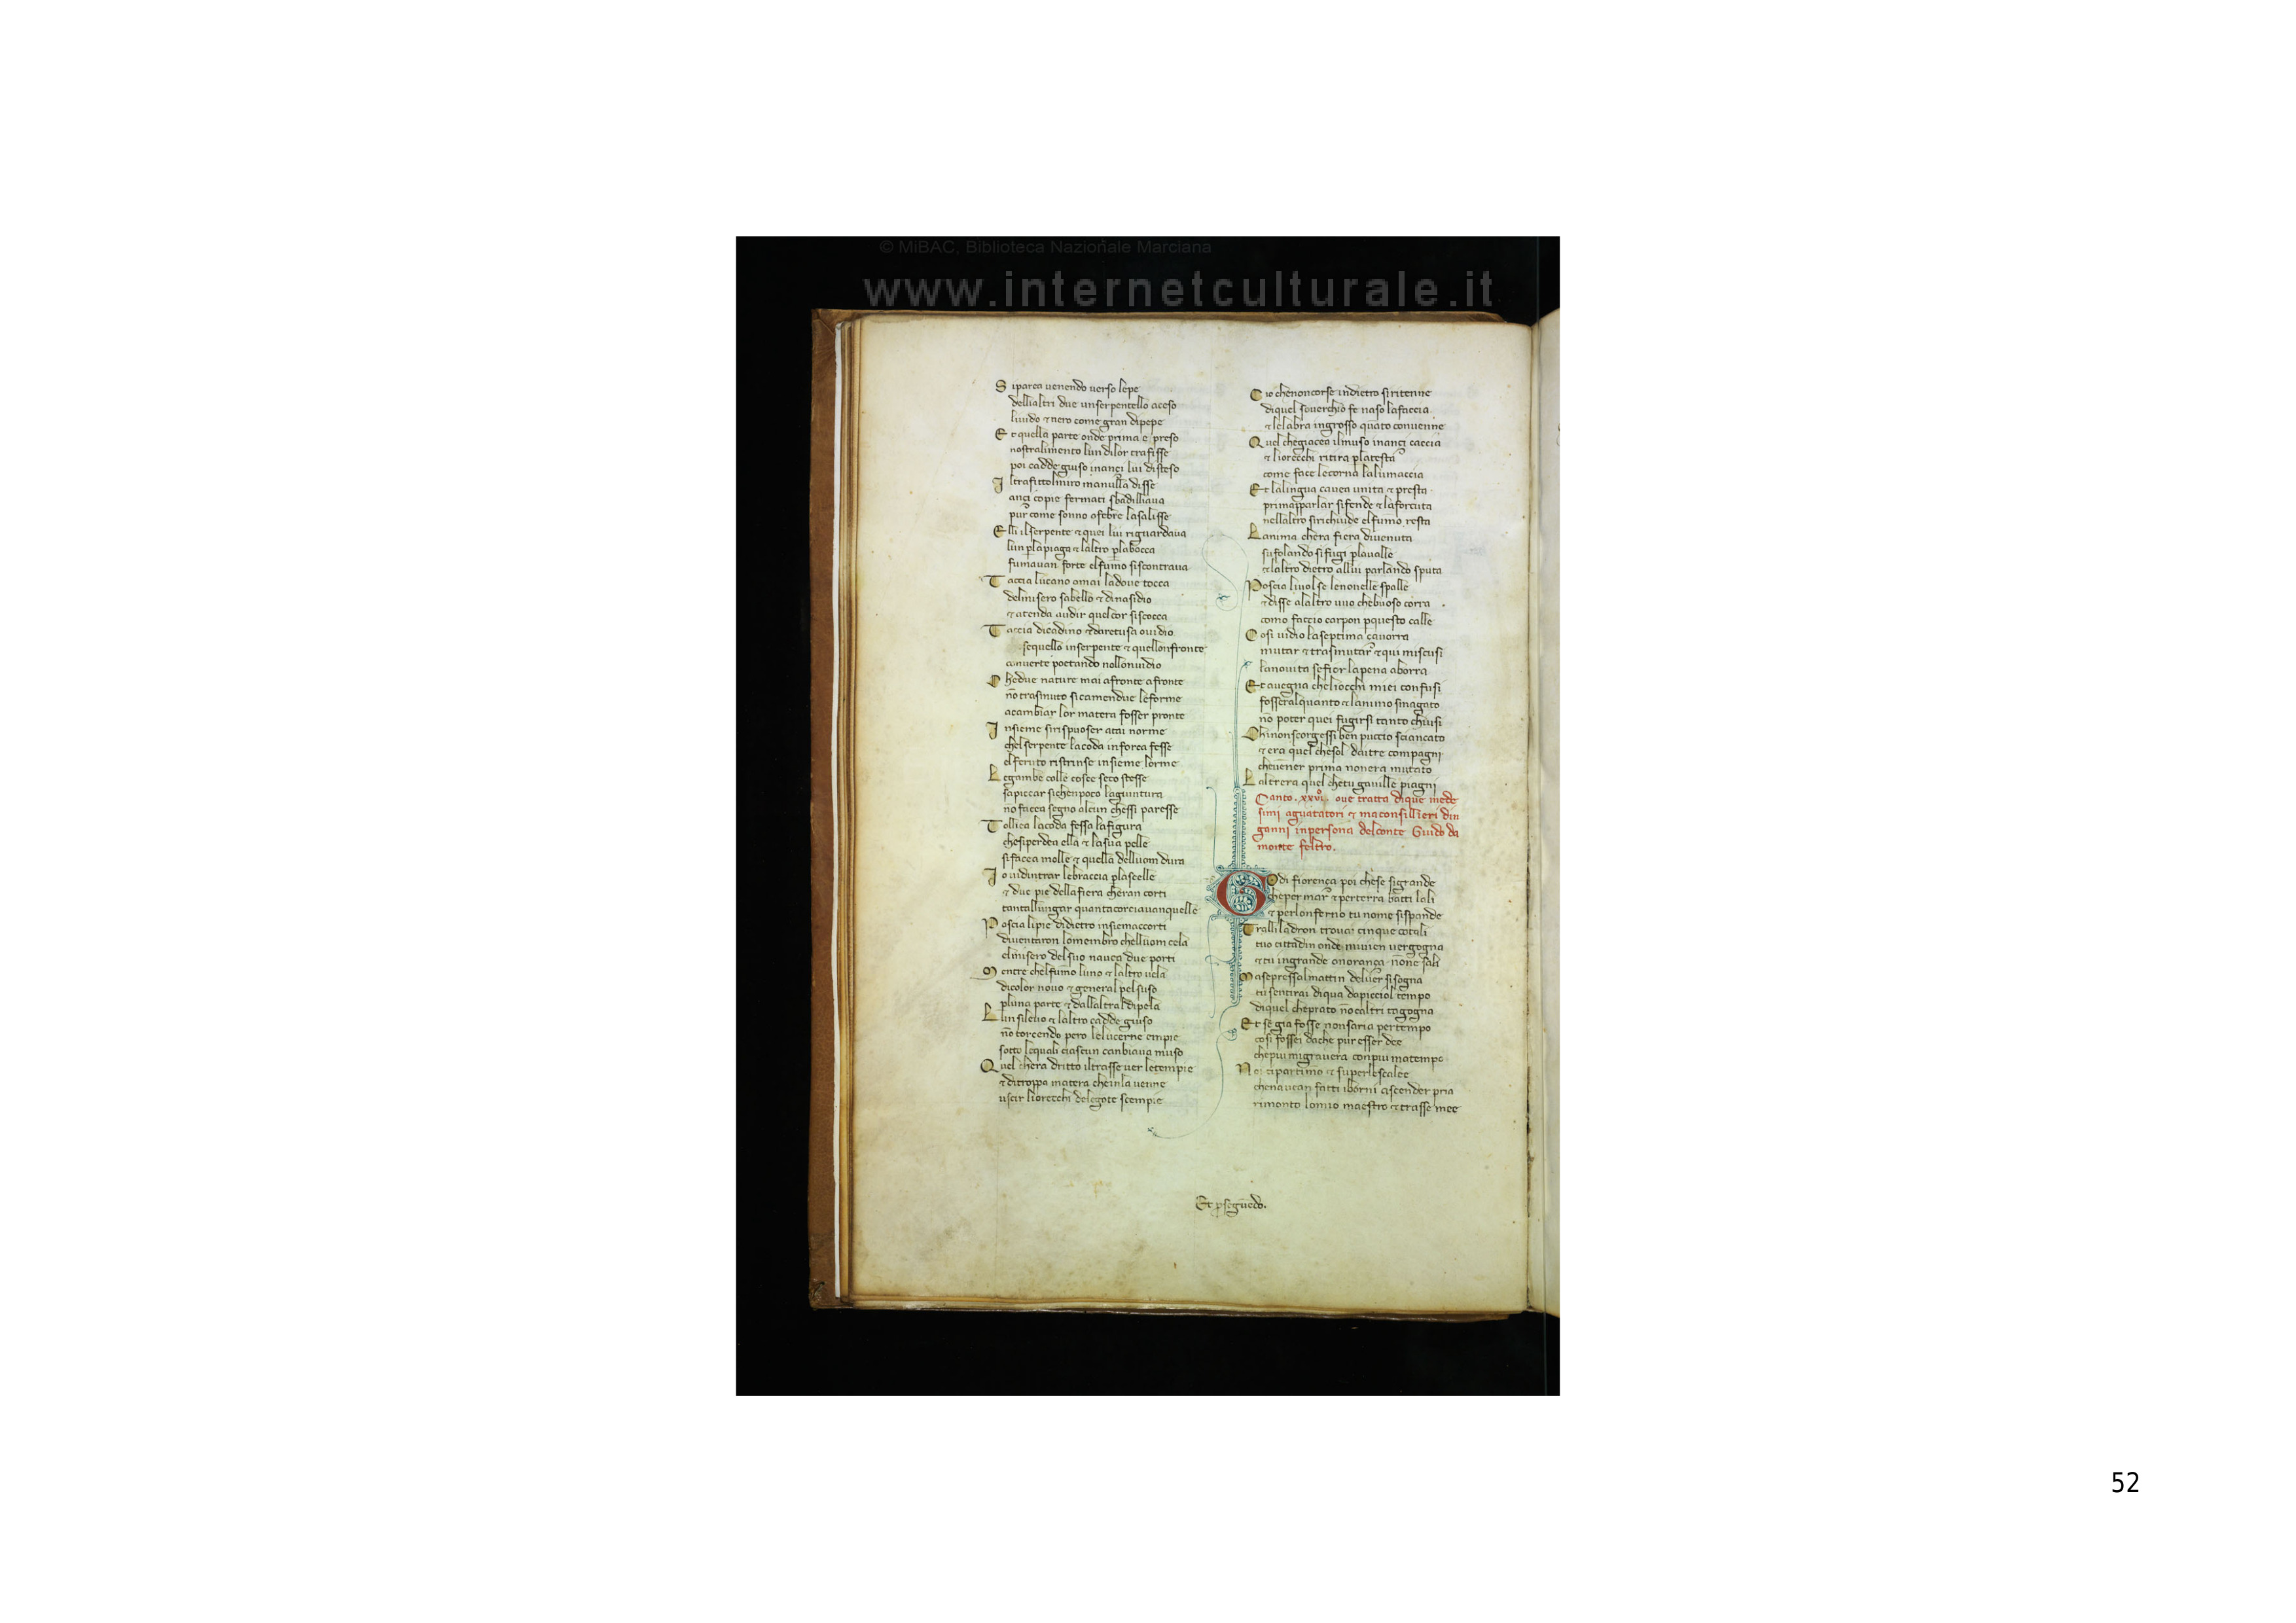 © MiBAC, Biblioteca Nazionale Marciana
www.internetculturale.it
S iparea uenendo uerso lepe
dellialtri due unserpentello aceso
liuido ⁊ nero come gran dipepe
E t quella parte onde prima e preso
nostralimento lun dilor trafisse
poi cadde giuso inanci lui disteso
I ltrafittolmiro manulla disse
anci copie fermati sbadilliaua
pur come sonno ofebre lasalisse
E lli ilserpente ⁊ quei lui riguardaua
lun plapiaga ⁊ laltro plabocca
fumauan forte elfumo siscontraua
T accia lucano omai ladoue tocca
delmisero sabello ⁊ dinasidio
⁊ atenda audir quelcor siscocca
T accia dicadino ⁊ daretusa ouidio
sequello inserpente ⁊ quellonfronte
conuerte poetando nollonuidio
C hedue nature mai afronte afronte
nō trasmuto sicamendue leforme
acambiar lor matera fosser pronte
I nsieme sirispuoser atai norme
chelserpente lacoda inforca fesse
elferuto ristrinse insieme lorme
L egambe colle cosce seco stesse
sapiccar sichenpoco lagiuntura
nō facea segno alcun chessi paresse
T ollica lacoda fessa lafigura
chesiperdea ella ⁊ lasua pelle
sifacea molle ⁊ quella delluom dura
I o uidintrar lebraccia plascelle
⁊ due pie dellafiera cheran corti
tantallungar quantacorciauanquelle
P oscia lipie didietro insiemaccorti
diuentaron lomembro chelluom cela
elmisero delsuo nauea due porti
M entre chelfumo luno ⁊ laltro uela
dicolor nouo ⁊ general pelsuso
pluna parte ⁊ dallaltral dipela
L un sileuo ⁊ laltro cadde giuso
nō torcendo pero lelucerne empie
sotto lequali ciascun canbiaua muso
Q uel chera dritto iltrasse uer letempie
⁊ ditroppa matera cheinla uenne
uscir liorecchi delegote scempie
C io chenoncorse indietro siritenne
diquel souerchio fe naso lafaccia
⁊ lelabra ingrosso quāto conuenne
Q uel chegiacea ilmuso inanci caccia
⁊ liorecchi ritira platesta
come face lecorna lalumaccia
E t lalingua cauea unita ⁊ presta
prima pparlar sifende ⁊ laforcuta
nellaltro sirichiude elfumo resta
L anima chera fiera diuenuta
sufolando sifugi plaualle
⁊ laltro dietro allui parlando sputa
P oscia liuolse lenouelle spalle
⁊ disse alaltro uuo chebuoso corra
como faccio carpon pquesto calle
C osi uidio laseptima cauorra
mutar ⁊ trasmutar ⁊ qui miscusi
lanouita sefior lapena aborra
E t auegna cheliocchi miei confusi
fosseralquanto ⁊ lanimo smagato
nō poter quei fugirsi tanto chiusi
C hinonscorgessi ben puccio sciancato
⁊ era quel chesol detre compagni
cheuener prima nonera mutato
L altrera quel chetu gauille piagni
Canto .xxvi. oue tratta dique mede
simi aguatatori ⁊ maconsillieri din
ganni inpersona delconte Guido da
monte feltro.
G Odi fiorenca poi chese sigrande
cheper mar ⁊ perterra batti lali
⁊ perlonferno tu nome sispande
T ralliladron trouai cinque cotali
tuo cittadin onde miuien uergogna
⁊ tu ingrande onoranca nōne sali
M asepressalmattin deluer sisogna
tu sentirai diqua dapicciol tempo
diquel cheprato nōcaltri tagogna
E t se gia fosse nonsaria pertempo
cosi fossei dache pur esser dee
chepiu migrauera conpiu matempo
N oi cipartimo ⁊ superlescalee
chenauean fatti iborni ascender pria
rimonto lomio maestro ⁊ trasse mee
Et pseguēdo.
52